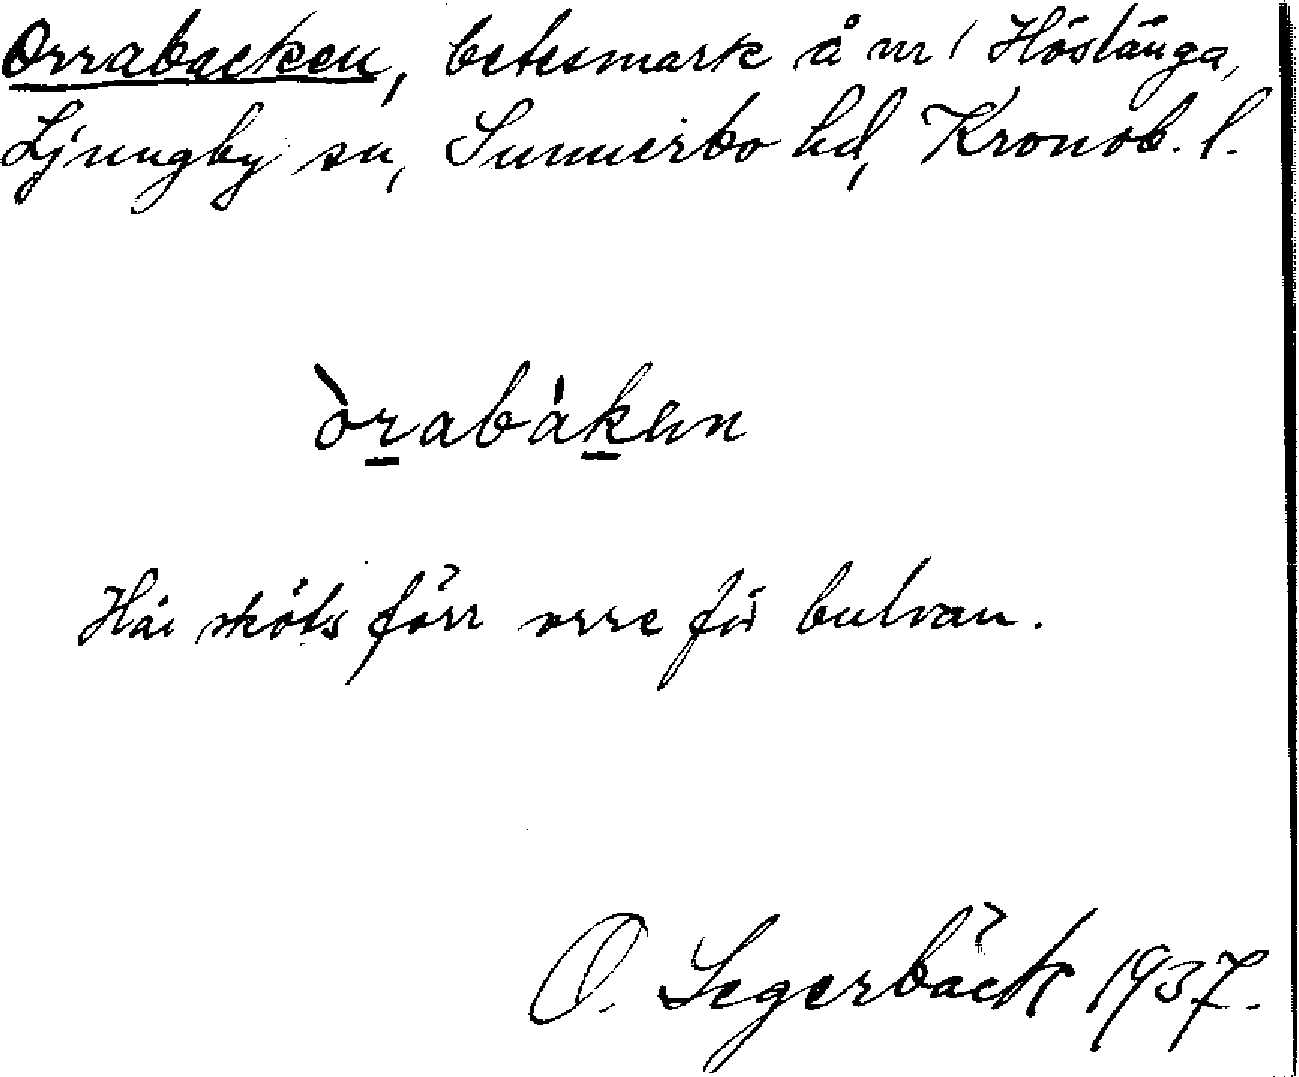 Orrabacken, betesmark å nr 1 Höslänga,
Ljungby sn, Sunnerbo hd, Kronob. l.
òrabákən
Här sköts förr orre för bulvan.
O. Segerbäck 1937.